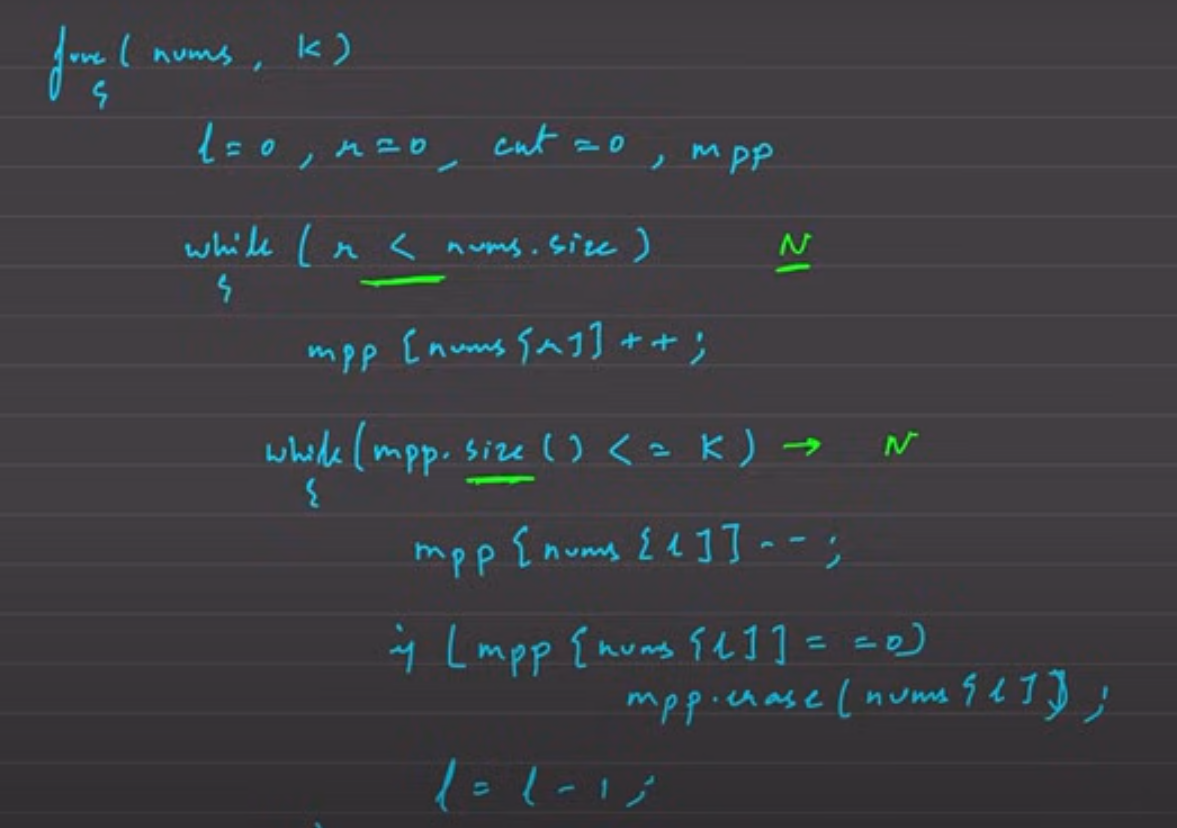 func( nums, K)
{
l=0, r=0, cnt=0, mpp
while (r < nums.size) N
{
mpp[nums[r]]++;
while(mpp.size() <= K) → N
{
mpp[nums[l]]--;
if (mpp[nums[l]]==0)
mpp.erase(nums[l]);
l = l-1;